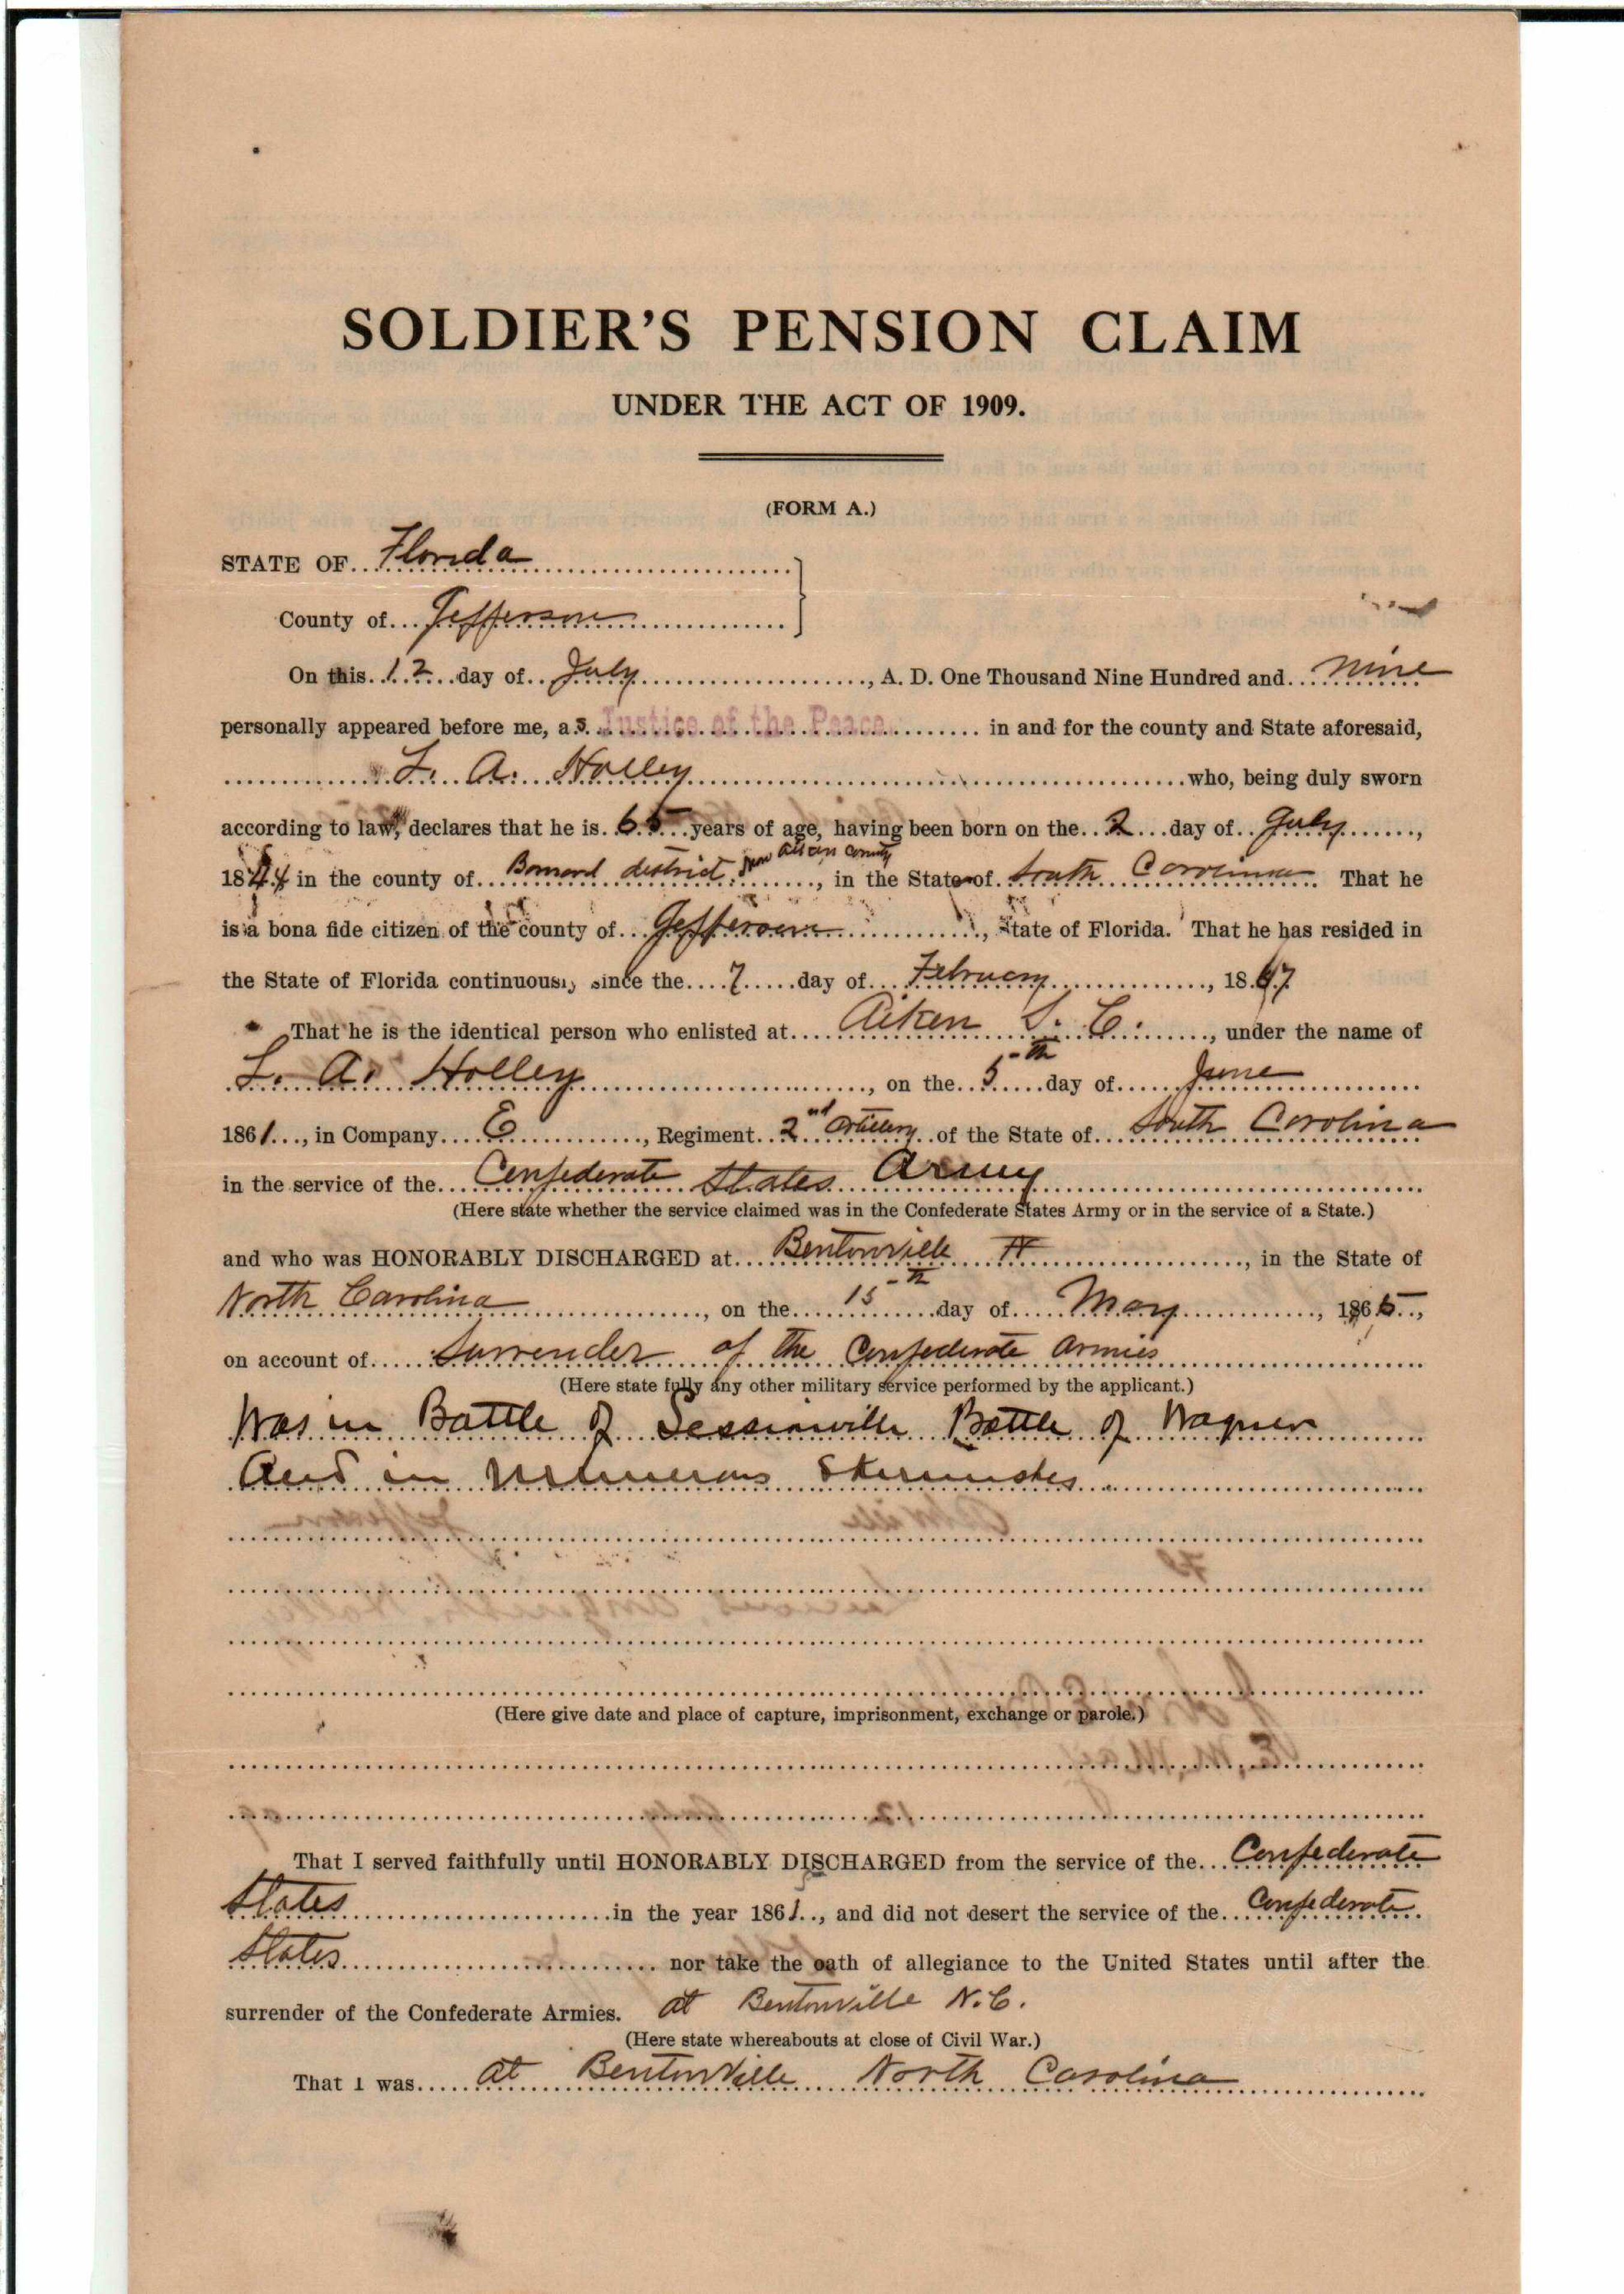 SOLDIER'S PENSION CLAIM
UNDER THE ACT OF 1909.
(FORM A.)
STATE OF Florida
County of Jefferson
On this 12 day of July, A. D. One Thousand Nine Hundred and nine
personally appeared before me, a s Justice of the Peace in and for the county and State aforesaid,
L. A. Holley who, being duly sworn
according to law, declares that he is 65 years of age, having been born on the 2 day of July,
1844 in the county of district now Aiken County, in the State of South Carolina. That he
is a bona fide citizen of the county of Jefferson, State of Florida. That he has resided in
the State of Florida continuously since the 7 day of February, 1867
That he is the identical person who enlisted at Aiken S. C., under the name of
L. A. Holley, on the 5th day of June
1861, in Company E, Regiment 2nd Artillery of the State of South Carolina
in the service of the Confederate States Army
(Here state whether the service claimed was in the Confederate States Army or in the service of a State.)
and who was HONORABLY DISCHARGED at Bentonville, in the State of
North Carolina, on the 15th day of May, 1865,
on account of Surrender of the Confederate Armies
(Here state fully any other military service performed by the applicant.)
Was in Battle of Sessionville Battle of Wagner
And in Numerous Skirmishes
(Here give date and place of capture, imprisonment, exchange or parole.)
That I served faithfully until HONORABLY DISCHARGED from the service of the Confederate
States in the year 1861, and did not desert the service of the Confederate
States nor take the oath of allegiance to the United States until after the
surrender of the Confederate Armies. at Bentonville N. C.
(Here state whereabouts at close of Civil War.)
That I was at Bentonville North Carolina